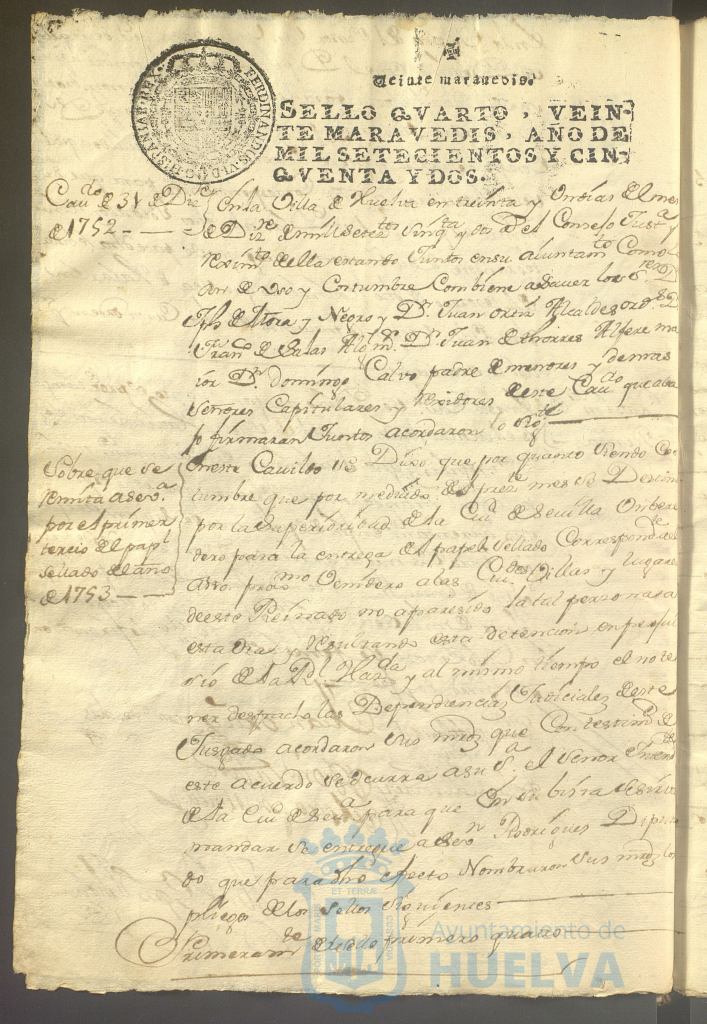 Veinte maravedis.
SELLO QVARTO, VEIN-
TE MARAVEDIS, AÑO DE
MIL SETECIENTOS Y CIN-
QVENTA Y DOS.
FERDINANDUS VI D G HISPANIAR REX
Cau.do de 31 de Dic.e
de 1752
En la Villa de Huelva en treinta y Un dias del mes
de Diz.re de mil setez.tos Cinq.ta y dos a.s el Consejo Just.a y
Reximi.to de ella estando Juntos en su aiuntam.to Como
an de Uso y Costumbre Combiene a Sauer los S.res D.n
de Mora y Negro y D.n Juan ortiz Alcaldes ord.s D.n
Fran.co de Salas D.n Juan de thorres Alferez ma
ior D.n Domingo Calvo padre de menores y demas
señores Capitulares y Rexidores de este Cau.do que aba
xo firmaran Juntos acordaron lo sig.te
Sobre que se
remita a Sev.a
por el primer
tercio del pap.l
sellado del año
de 1753
En este Cauildo Dixo que por quanto siendo Cos
tumbre que por mediado del pres.te mes se Destin
por la Superioridad de la Ciu.d de Sevilla Un bere
dero para la entrega del papel Sellado Correspond.te
a los Ciu.des Villas y lugares
de este Reinado no aparesido la tal perzona a
esta Dia, y resultando esta detencion en perjui
sio de la R.l Haz.da y al mismo tiempo el no te
ner despacho las Dependencias Judiciales de este
Juzgado acordaron sus mrds que Con testim.o de
este acuerdo se ocurra a su S.a el Senor Intend.te
de la Ciu.d de Sev.a para que en su bista se sirva
mandar se entregue a Rodrigues Diputa
do que para dho efecto Nombraron sus mrds los
pliegos de los sellos siguientes
Primeram.te del sello primero quatro
Ayuntamiento de
HUELVA